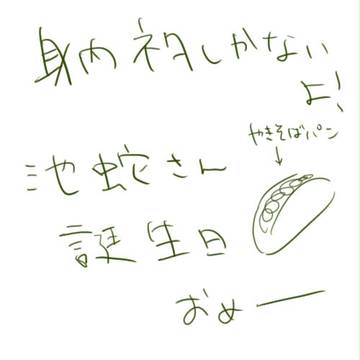 身内ネタしかない
よ！
やきそばパン
↓
池蛇さん
誕生日
おめー